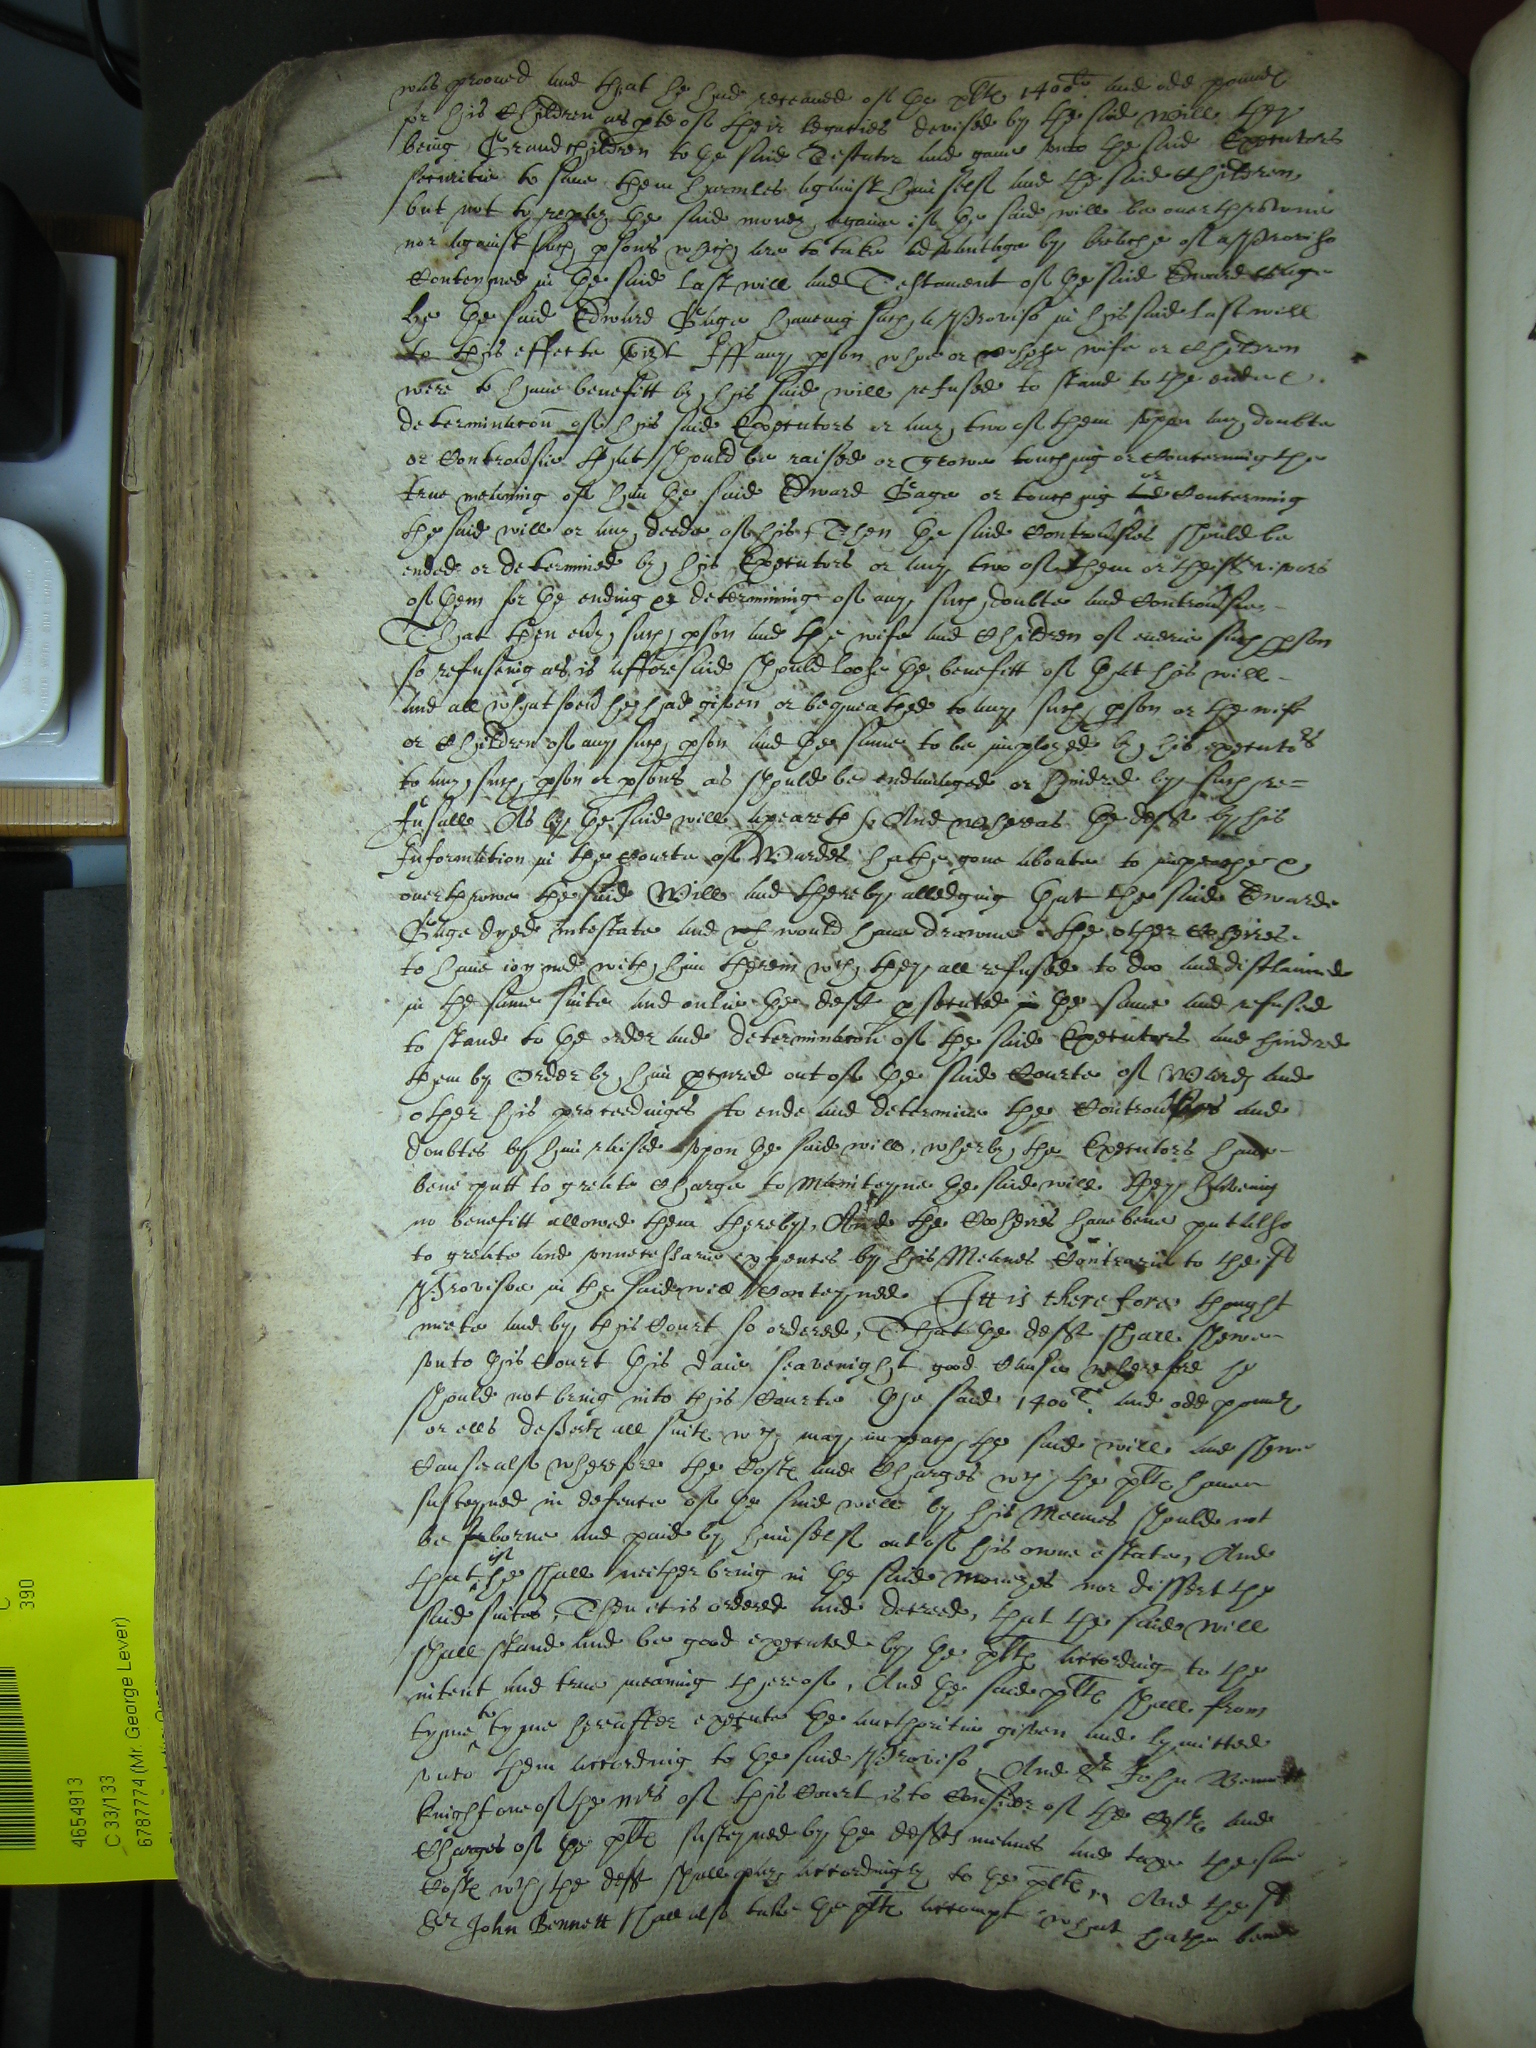 was prooved and that he had receaved of the plts 1400li and odd pounds
for his Children as pte of their legacies devised by the said Will they
being Grandchildren to the said Testator and gave unto the said Executors
securitie to save them harmles against himself and the said Children
but not to repley the said money againe if the said will be overthrowne
nor against such psons which are to take advantage by breache of a Proviso
Conteyned in the said last will and Testament of the said Edward Gage
he the said Edward Gage haveing such a Proviso in his said last will
to this effecte vizt Iff any pson who or whose wife or Children
were to have benefitt by his said will refused to stand to the ende &
determinacon of his said Executors or any two of them uppon any doubte
or Controversie that should be raised or growe touching or Concerning the
true meaning of him the said Edward Gage or touching or Concerning
the said will or any deede of his, Then the said Controversies should be
ended or determined by his Executors or any two of them or the survivors
of them for the ending or determininge of any such doubte and Controversie
That then every such pson and the wife and Children of everie such pson
so refuseing as is afforesaid should loose the benefitt of that his will
and all whatsoever he had given or bequeathed to any such pson or the wife
or Children of any such pson and the same to be imployed by his executors
to any such pson or psons as should be endamaged or hyndred by such re=
fusall As by the said will apeareth And whereas the deft by his
Information in the Courte of Wardes hathe gone aboute to impeache &
overthrowe the said Will and thereby alledging that the said Edwarde
Gage dyed intestate and would have drawne the other Coheires
to have ioyned with him therein wch they all refused to doo and disclaimed
in the same suite and onlie the deft psecuted the same and refused
to stande to the order and determinacon of the said Executors and hindred
them by Order by him pcured out of the said Courte of Wards and
other his proceedinges to ende and determine the Controversies and
doubtes by him raised upon the said will, wherby the Executors have
bene putt to greate Charge to Mainteyne the said will they haveing
no benefitt allowed them thereby, And the Coheires have bene put also
to greate and unnecessarie expences by his Meanes Contrarie to the sd
Provisoe in the said will Conteyned Itt is therefore thought
meete and by this Court so ordered, That the deft shall shewe
unto this Court this daie seavenight good Cause wherefore he
should not bring into this Courte the said 1400li and odd pounds
or ells dessert all suits wch may impeach the said will and shew
Cause also wherefore the Costs and Charges wch the plts have
susteyned in defence of the said will by his Meanes should not
be borne and paid by himself out of his owne estate, And
that if he shall neither bring in the said moneyes nor dissert the
said suites, Then it is ordered and decreed, that the said will
shall stand and be good executed by the plts according to the
intent and true meaning thereof, And the said plts shall from
tyme to tyme hereafter execute the aucthoritie given and lymitted
unto them according to the said Proviso, And Sr John Bennett
knight one of the mrs of this Court is to Consider of the Costs and
Charges of the plts susteyned by the defts meanes and taxe the same
Costs wch the deft shall pay accordingly to the plts, And the sd
Ser John Bennett shall also take the plts accompt what hathe bene
4654913
C 33/133
6787774 (Mr. George Lever)
C
390